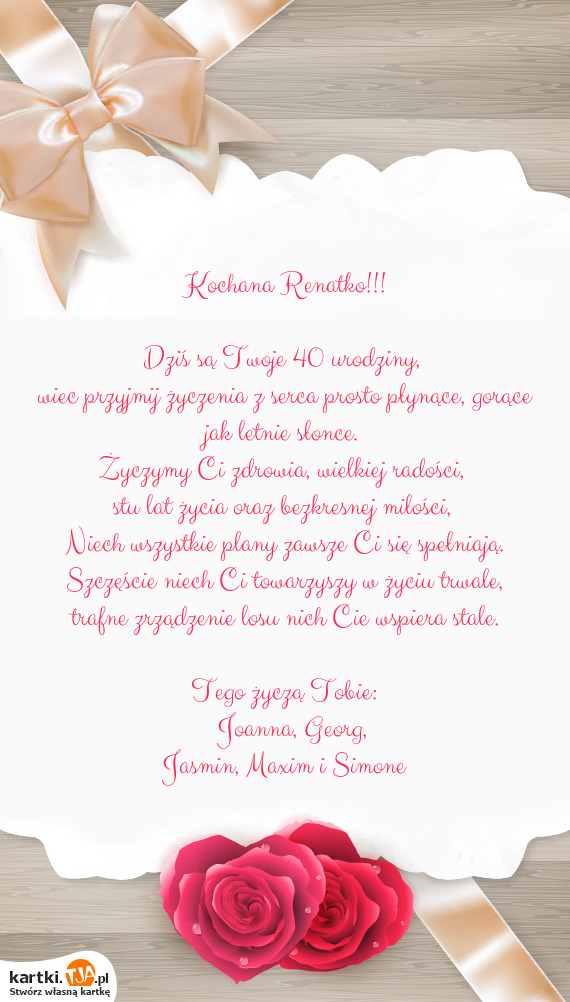 Kochana Renatko!!!
Dziś są Twoje 40 urodziny,
wiec przyjmij życzenia z serca prosto płynące, gorące
jak letnie słonce.
Życzymy Ci zdrowia, wielkiej radości,
stu lat życia oraz bezkresnej miłości,
Niech wszystkie plany zawsze Ci się spełniają.
Szczęście niech Ci towarzyszy w życiu trwale,
trafne zrządzenie losu nich Cie wspiera stale.
Tego życzą Tobie:
Joanna, Georg,
Jasmin, Maxim i Simone
kartki.TJA.pl
Stwórz własną kartkę